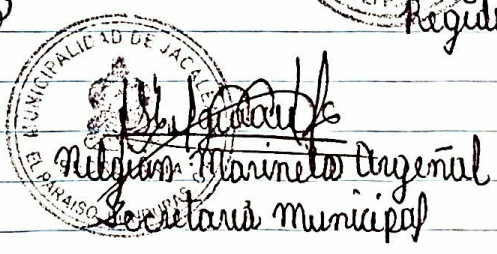 Regid
MUNICIPALIDAD DE JACALE
EL PARAISO
Marinela Argeñal
Secretaria Municipal